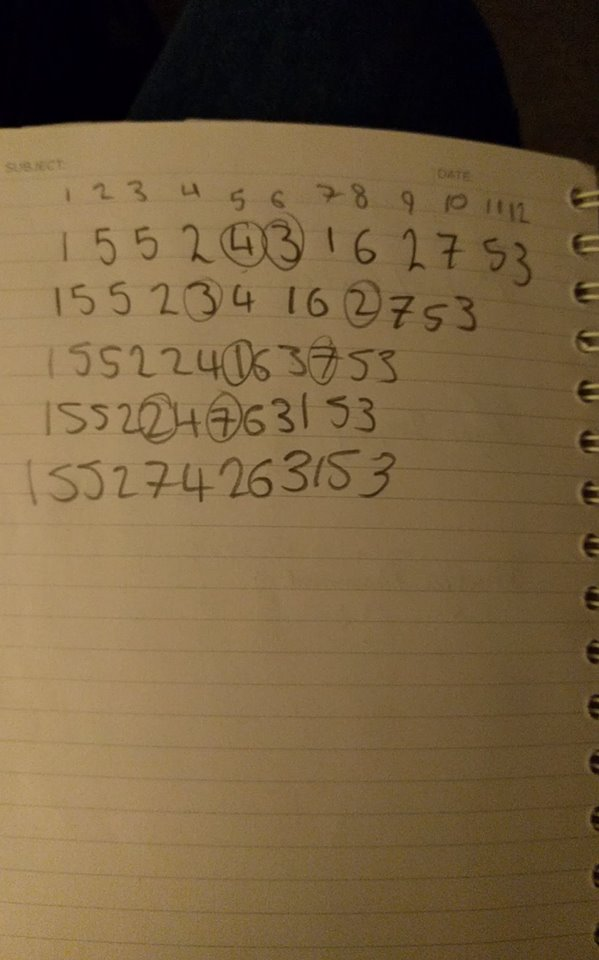 SUBJECT:
DATE
1 2 3 4 5 6 7 8 9 10 11 12
1 5 5 2 4 3 1 6 2 7 5 3
1 5 5 2 3 4 1 6 2 7 5 3
155224163753
155224763153
155274263153